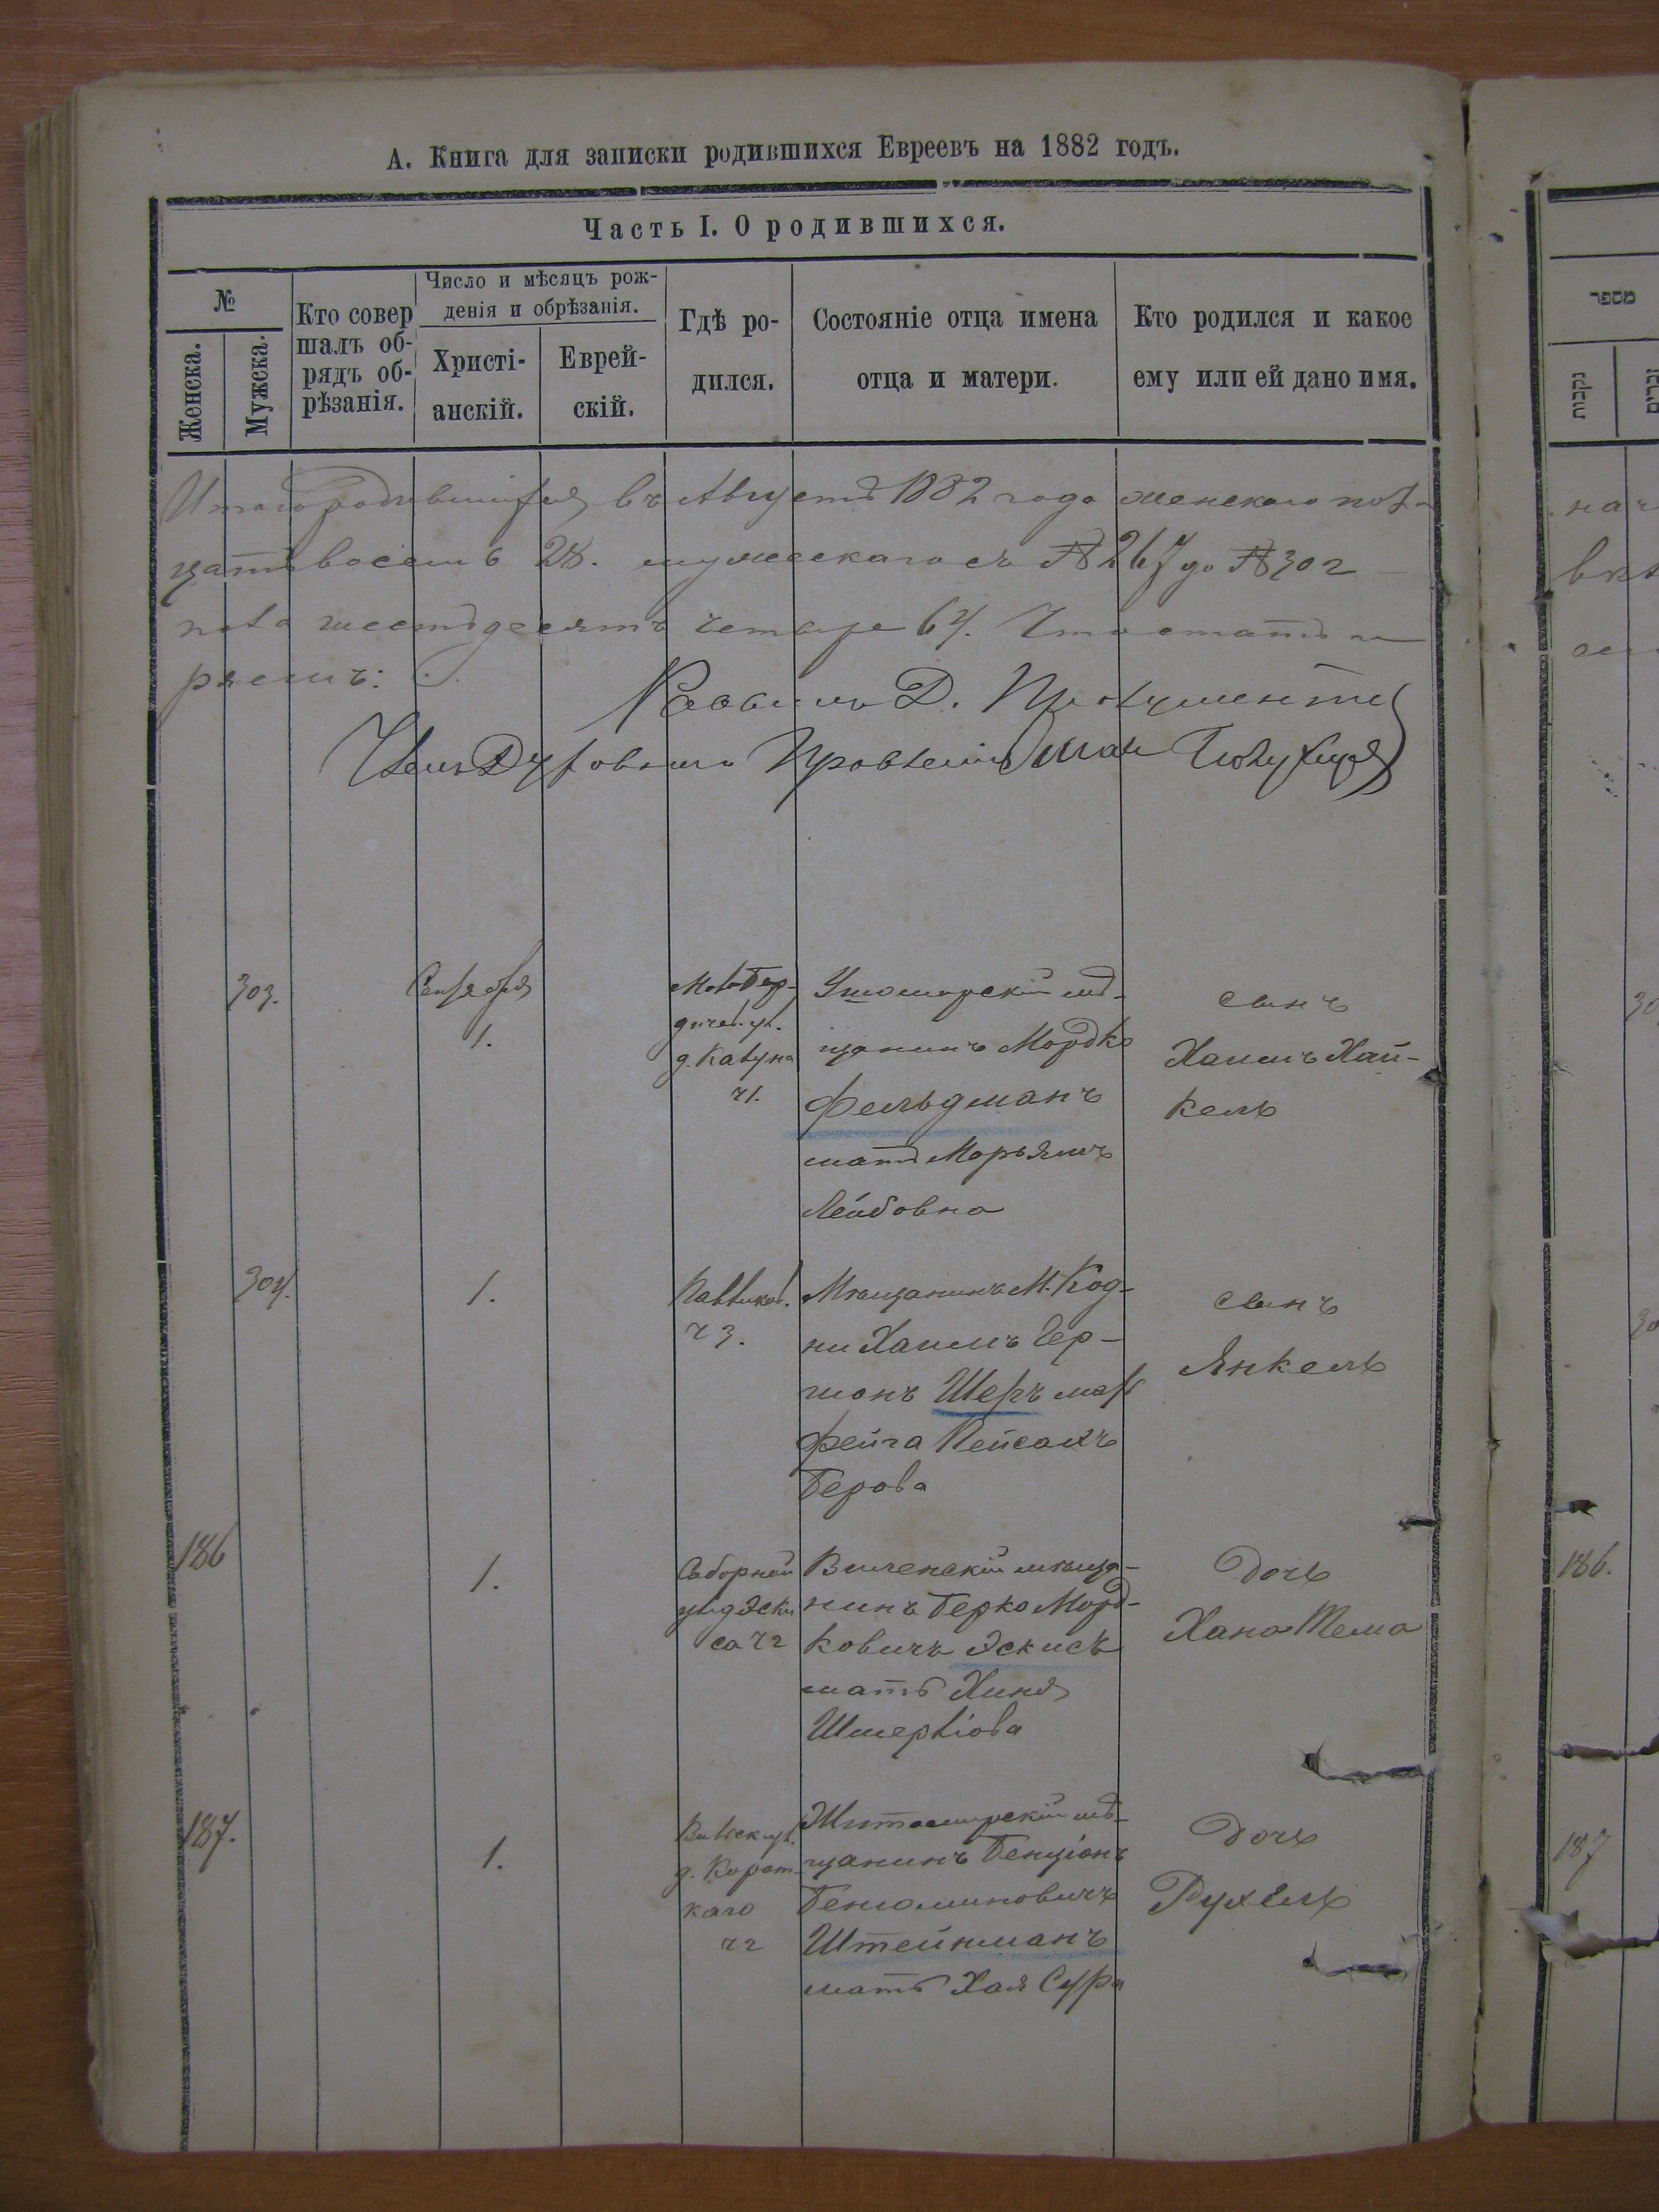 А. Книга для записки родившихся Евреевъ на 1882 годъ.
Часть I. О родившихся.
№
Женска.
Мужска.
Кто совер
шалъ об-
рядъ об-
рѣзанія.
Число и мѣсяцъ рож-
денія и обрѣзанія.
Христі-
анскій.
Еврей-
скій.
Гдѣ ро-
дился.
Состояніе отца имена
отца и матери.
Кто родился и какое
ему или ей дано имя.
Итого родившихся въ Августѣ 1882 года женскаго пола
цать восемь 28. мужескаго съ № 267 до № 302
пола шестьдесятъ четыре 64. Что
Раввинъ Д.
Членъ Духовнаго Правленія
303.
Сентября
1.
МалоБер-
дичев. ул.
ч1.
мѣ-
щанинъ Мордко
Фельдманъ
мать Марьямъ
Лейбовна
сынъ
Хаимъ Хай-
кель
304.
1.
ч 3.
Мѣщанинъ М. Код-
ни Хаимъ Гер-
шонъ Шеръ мать
Фейга Пейсахъ
Берова
сынъ
Янкель
186
1.
Соборной
ул д Эски
са ч2
Виленскій мѣща-
нинъ Берко Морд-
ковичъ Эскисъ
мать Хиня
Шмерліова
Дочь
Хана Тема
187.
1.
Вильск ул.
д. Корот-
каго
ч2
Житомирскій мѣ-
щанинъ Бенціонъ
Беніоминовичъ
Штейнманъ
мать Хая Сура
Дочь
Рухель
מספר
נקבות
זכרים
186.
187